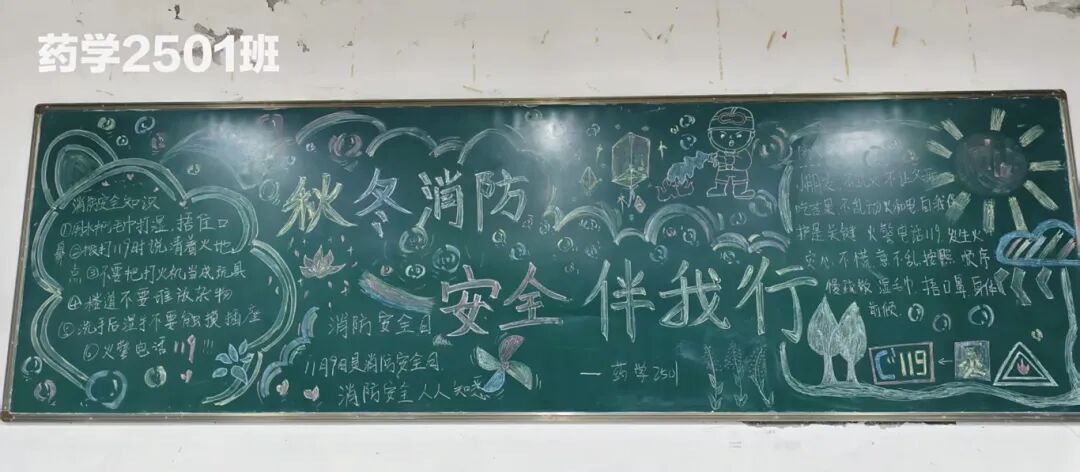 药学2501班
秋冬消防
安全伴我行
消防安全知识
①用水把毛巾打湿,捂住口
鼻②拨打119时说清着火地
点③不要把打火机当成玩具
④楼道不要堆放杂物
⑤洗手后湿手不要触摸插座
⑥火警电话119!!!
消防安全日
11月9日是消防安全日
消防安全人人知悉
—药学2501
不乱动火和电自我保
护是关键 火警电话119 发生火
灾 不慌章不乱按照 顺序
慢疏散 湿毛巾 捂口鼻 身体
前倾
119